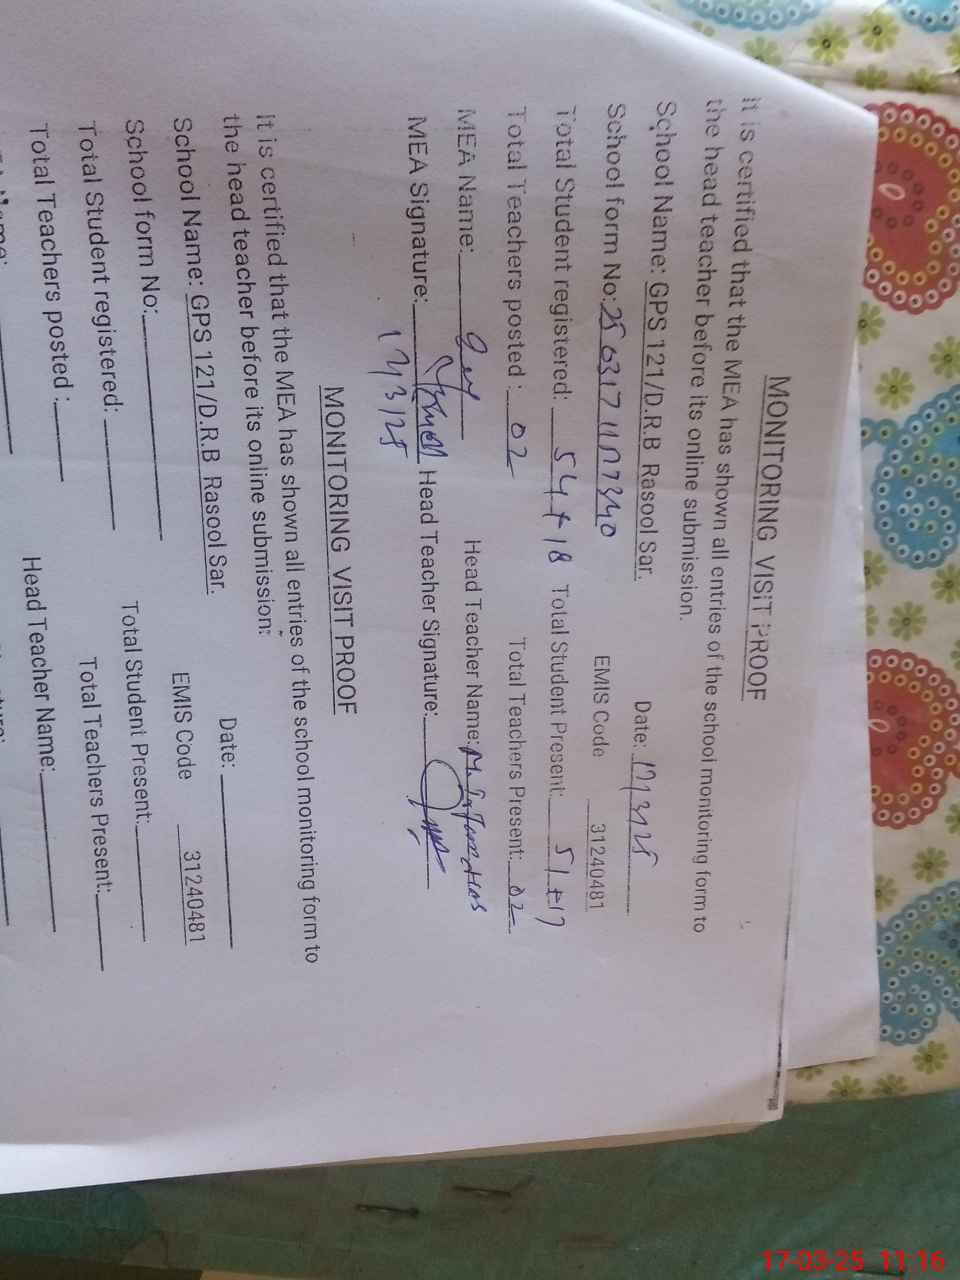 MONITORING VISIT PROOF
It is certified that the MEA has shown all entries of the school monitoring form to
the head teacher before its online submission.
School Name: GPS 121/D.R.B Rasool Sar. Date: 17/3/25
School form No: EMIS Code 31240481
Total Student registered: 54+18 Total Student Present: 51+17
Total Teachers posted : 02 Total Teachers Present: 02
MEA Name: Head Teacher Name:
MEA Signature: Head Teacher Signature:
17/3/25
MONITORING VISIT PROOF
It is certified that the MEA has shown all entries of the school monitoring form to
the head teacher before its online submission.
School Name: GPS 121/D.R.B Rasool Sar. Date:
School form No: EMIS Code 31240481
Total Student registered: Total Student Present:
Total Teachers posted : Total Teachers Present:
Head Teacher Name:
17-03-25 11:16